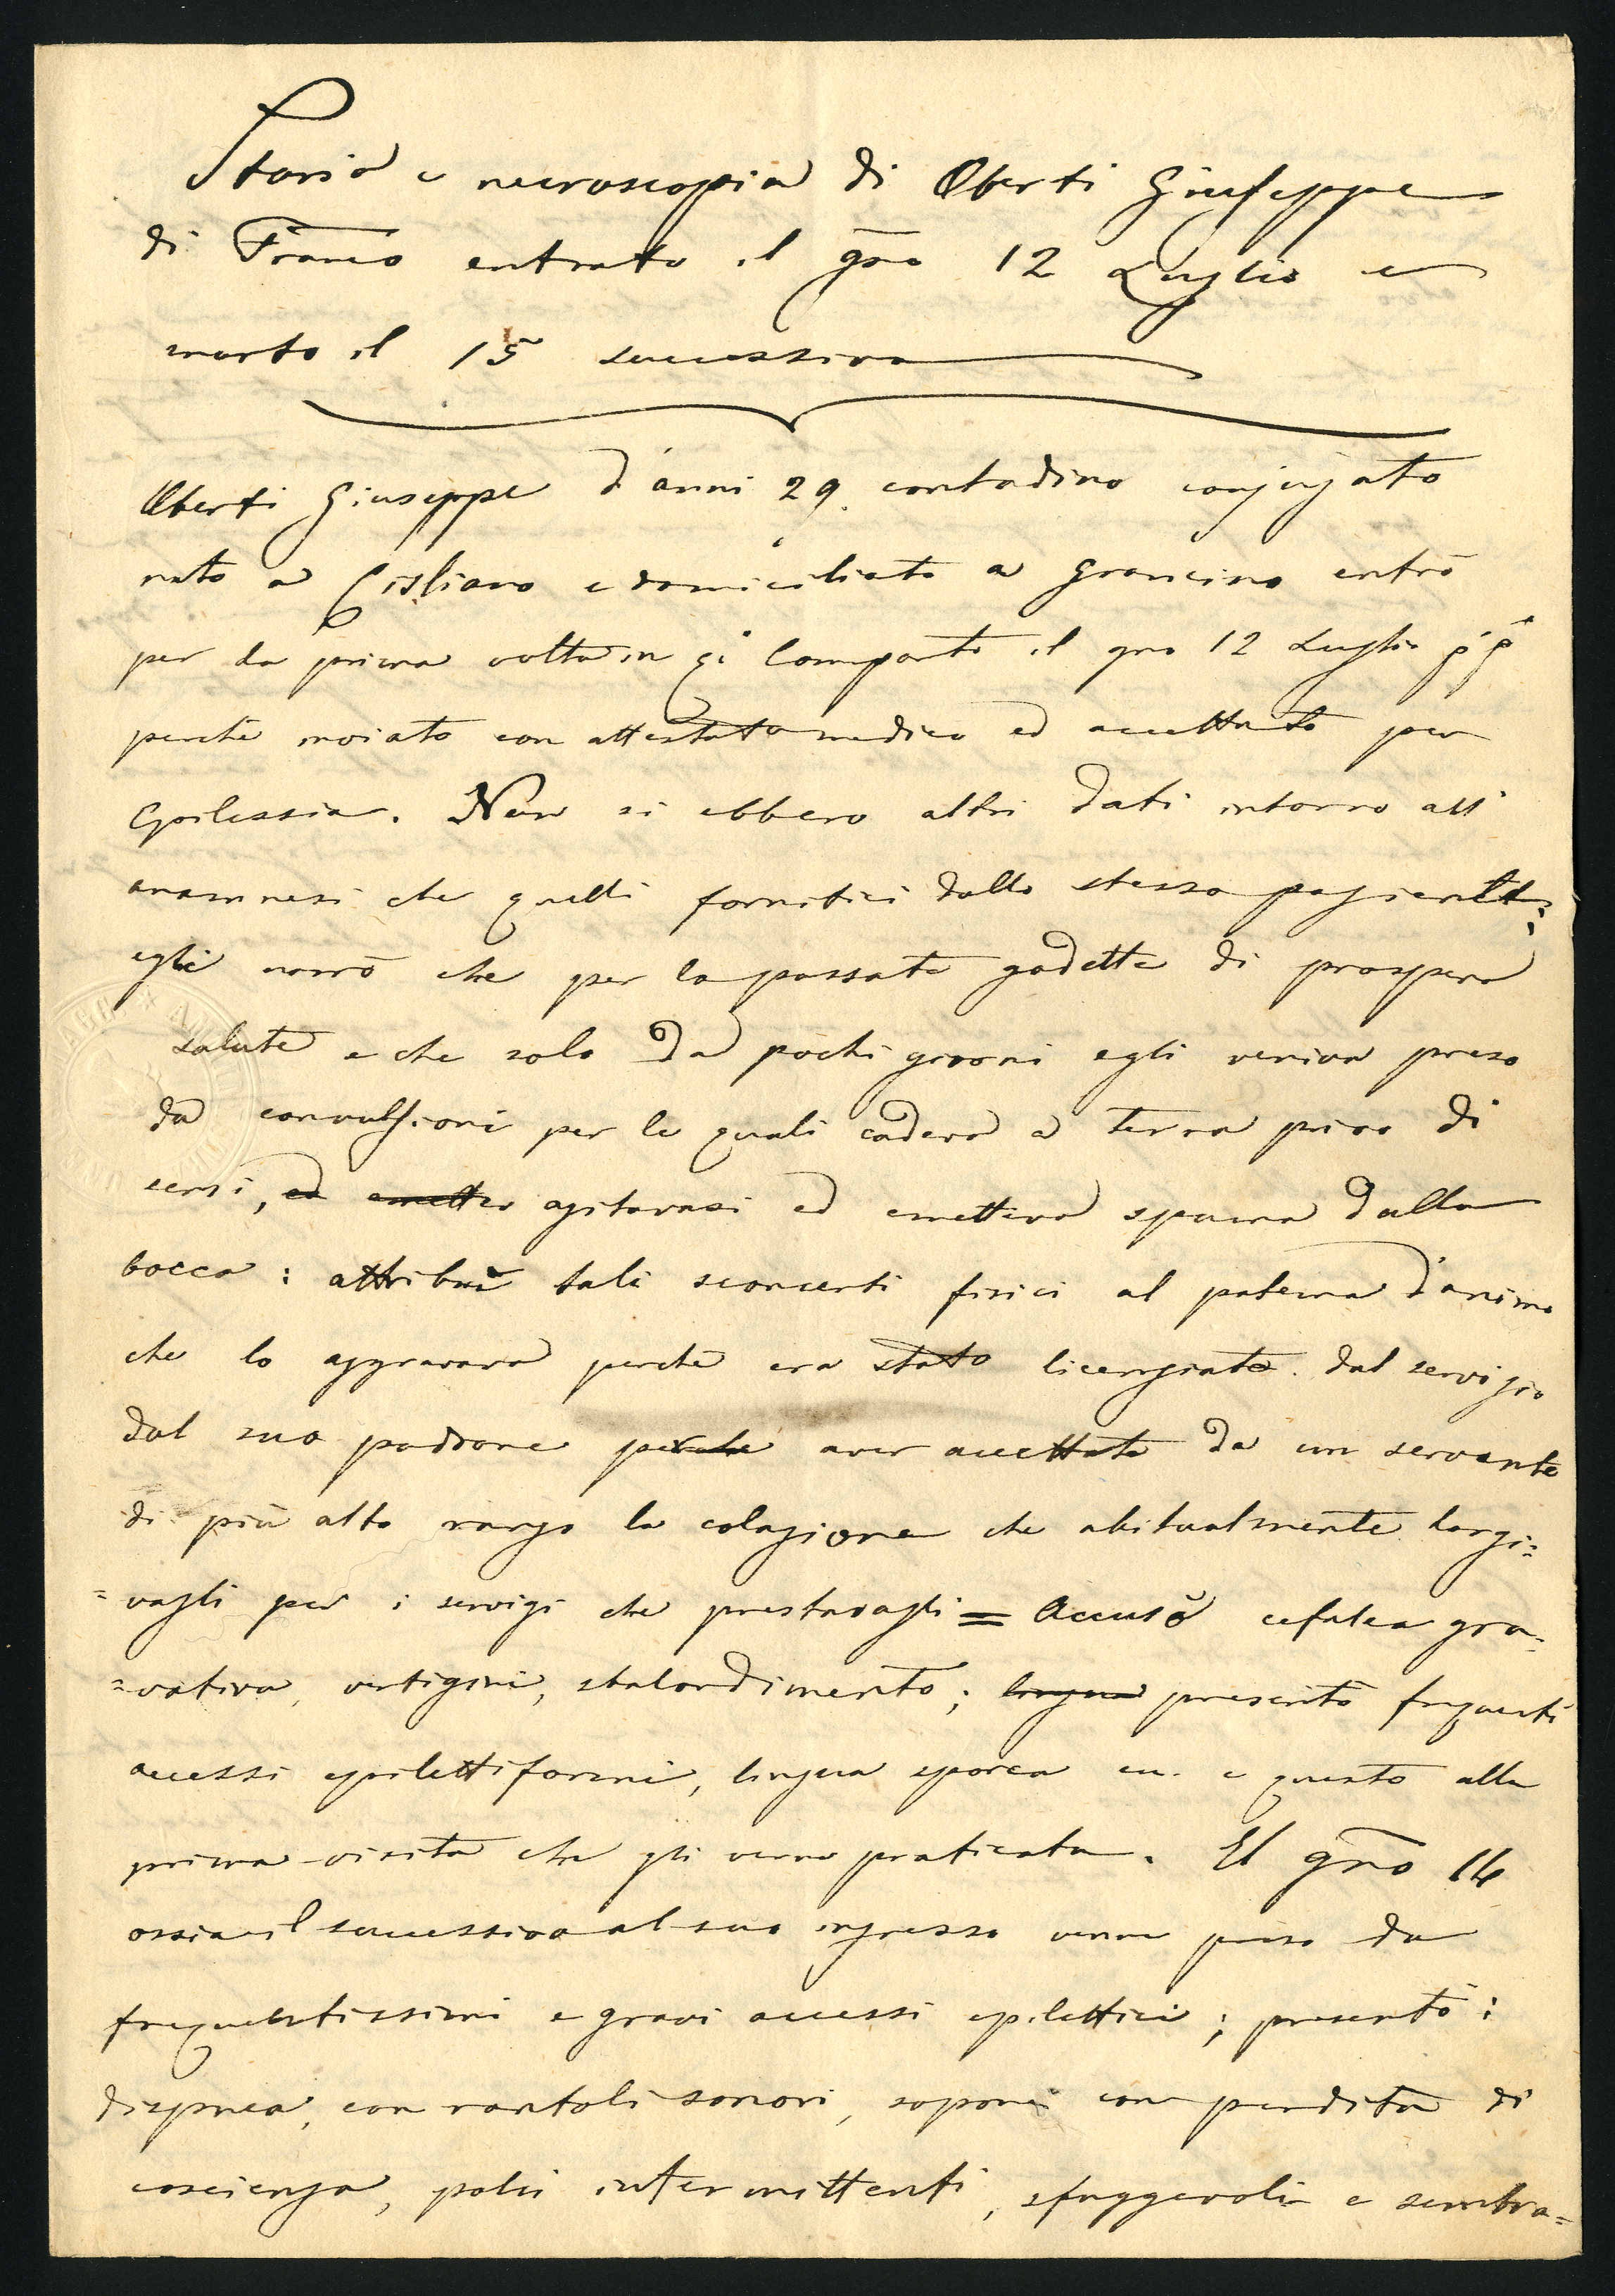 Storia e necroscopia di Oberti Giuseppe
di Franco entrato il gno 12 Luglio e
morto il 15 successivo
Oberti Giuseppe d'anni 29 contadino conjugato
nato a Cisliano e domiciliato a Grancino entrò
per la prima volta in qto Comparto il gno 12 Luglio p.p.
perchè inviato con attestato medico ed accettato per
Epilessia. Non si ebbero altri dati intorno all'
anamnesi che quelli fornitici dallo stesso paziente;
egli narrò che per lo passato godette di prospera
salute e che solo da pochi giorni egli veniva preso
da convulsioni per le quali cadeva a terra privo di
sensi, ed emetter agitavasi ed emetteva spuma dalla
bocca: attribuì tali sconcerti fisici al patema d'animo
che lo aggravava perchè era stato licenziato dal servizio
dal suo padrone perchè aver accettato da un servente
di più alto rango la colazione che abitualmente largi=
=vagli per i servigi che prestavagli = Accusò cefalea gra=
=vativa, vertigini, sbalordimento; lingua presentò frequenti
accessi epilettiformi, lingua sporca ecc. e questo alla
prima visita che gli venne praticata. Il gno 14
ossia il successivo al suo ingresso venne preso da
frequentissimi e gravi accessi epilettici; presentò:
dispnea, con rantoli sonori, sopore con perdita di
coscienza, polsi intermittenti, sfuggevoli e sembra=